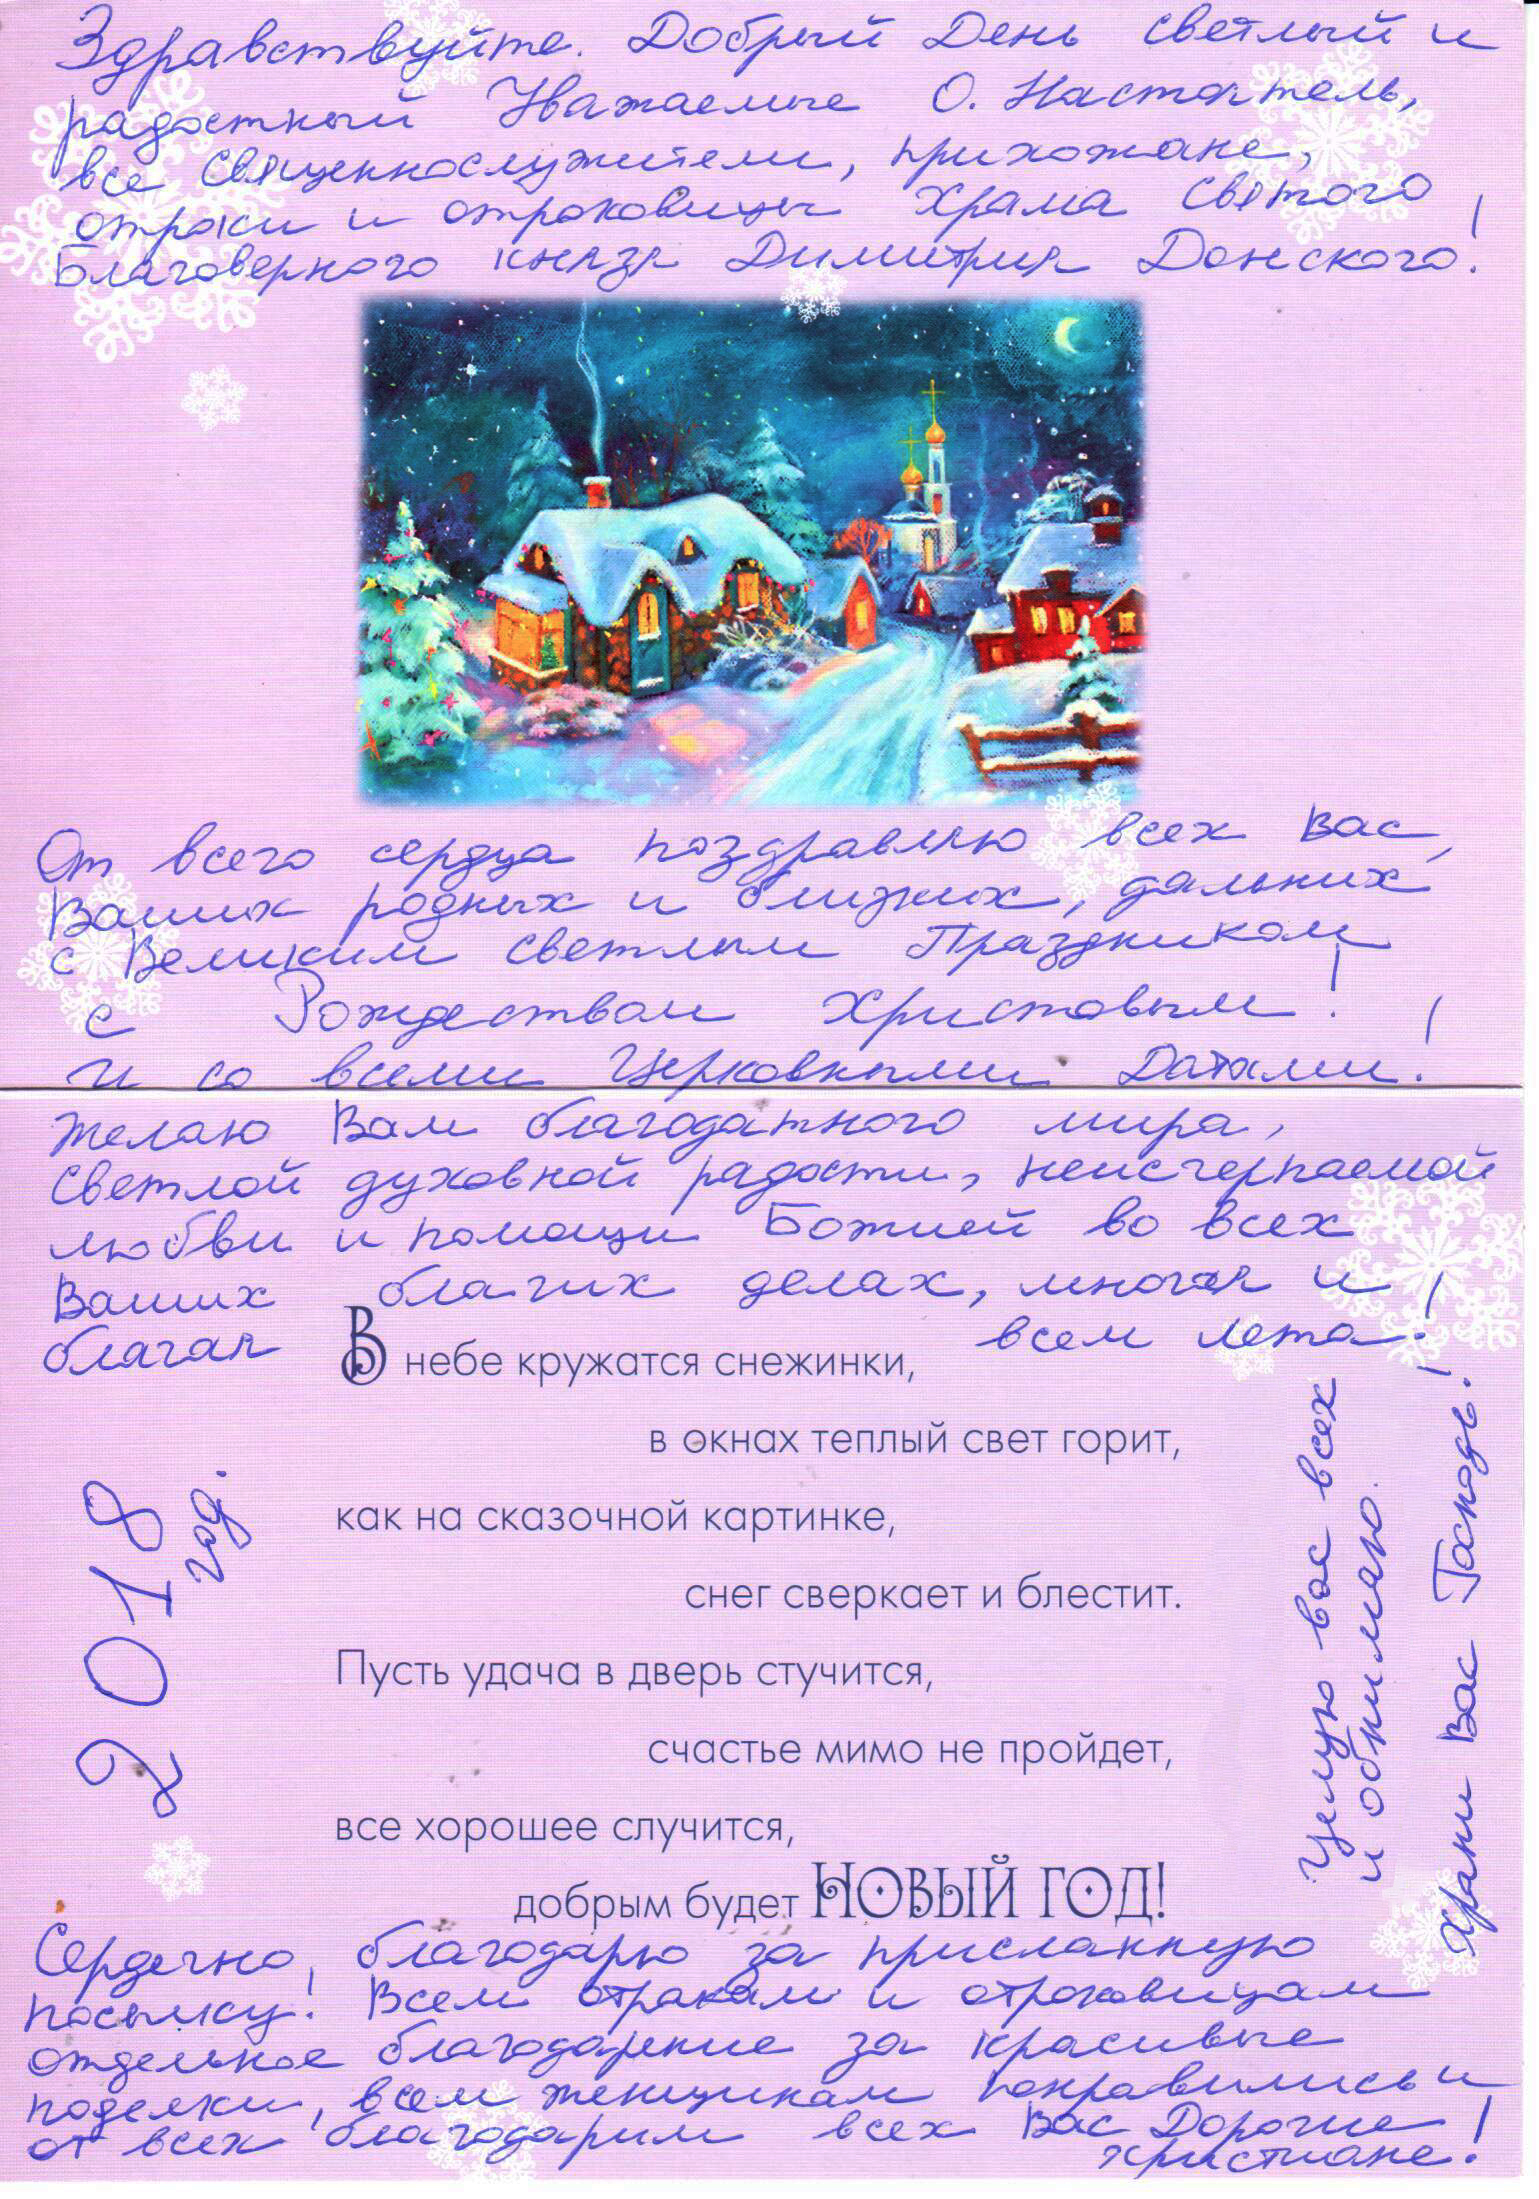 Здравствуйте. Добрый День светлый и
радостный Уважаемые О. Настоятель,
все Священнослужители, прихожане,
отроки и отроковицы Храма Святого
Благоверного князя Димитрия Донского!
От всего сердца поздравляю всех Вас,
Ваших родных и близких, дальних
с Великим Светлым Праздником
с Рождеством Христовым!
и со всеми Церковными Датами!
Желаю Вам благодатного мира,
светлой духовной радости, неисчерпаемой
любви и помощи Божией во всех
Ваших благих делах, многая и
благая всем лета!
В небе кружатся снежинки,
в окнах теплый свет горит,
как на сказочной картинке,
снег сверкает и блестит.
Пусть удача в дверь стучится,
счастье мимо не пройдет,
все хорошее случится,
добрым будет НОВЫЙ ГОД!
2018
год.
Целую вас всех
и обнимаю.
Храни Вас Господь!
Сердечно благодарю за присланную
посылку! Всем отрокам и отроковицам
отдельное благодарение за красивые
поделки, всем женщинам понравились и
от всех благодарим всех Вас Дорогие
христиане!